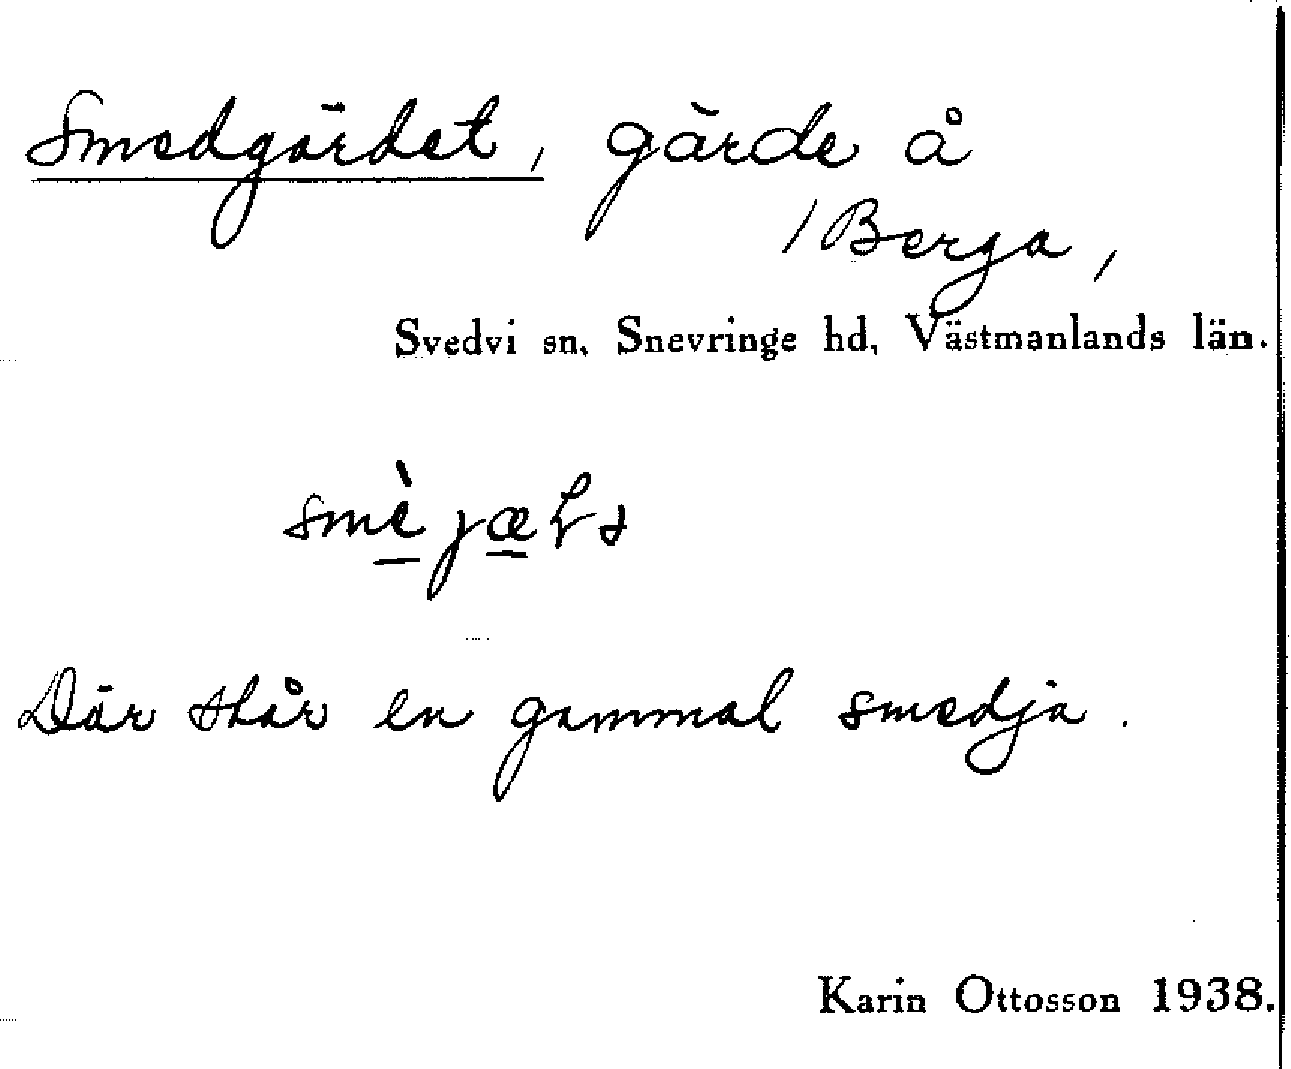 Smedgärdet, gärde å
/ Berga,
Svedvi sn, Snevringe hd, Västmanlands län.
Där står en gammal smedja.
Karin Ottosson 1938.